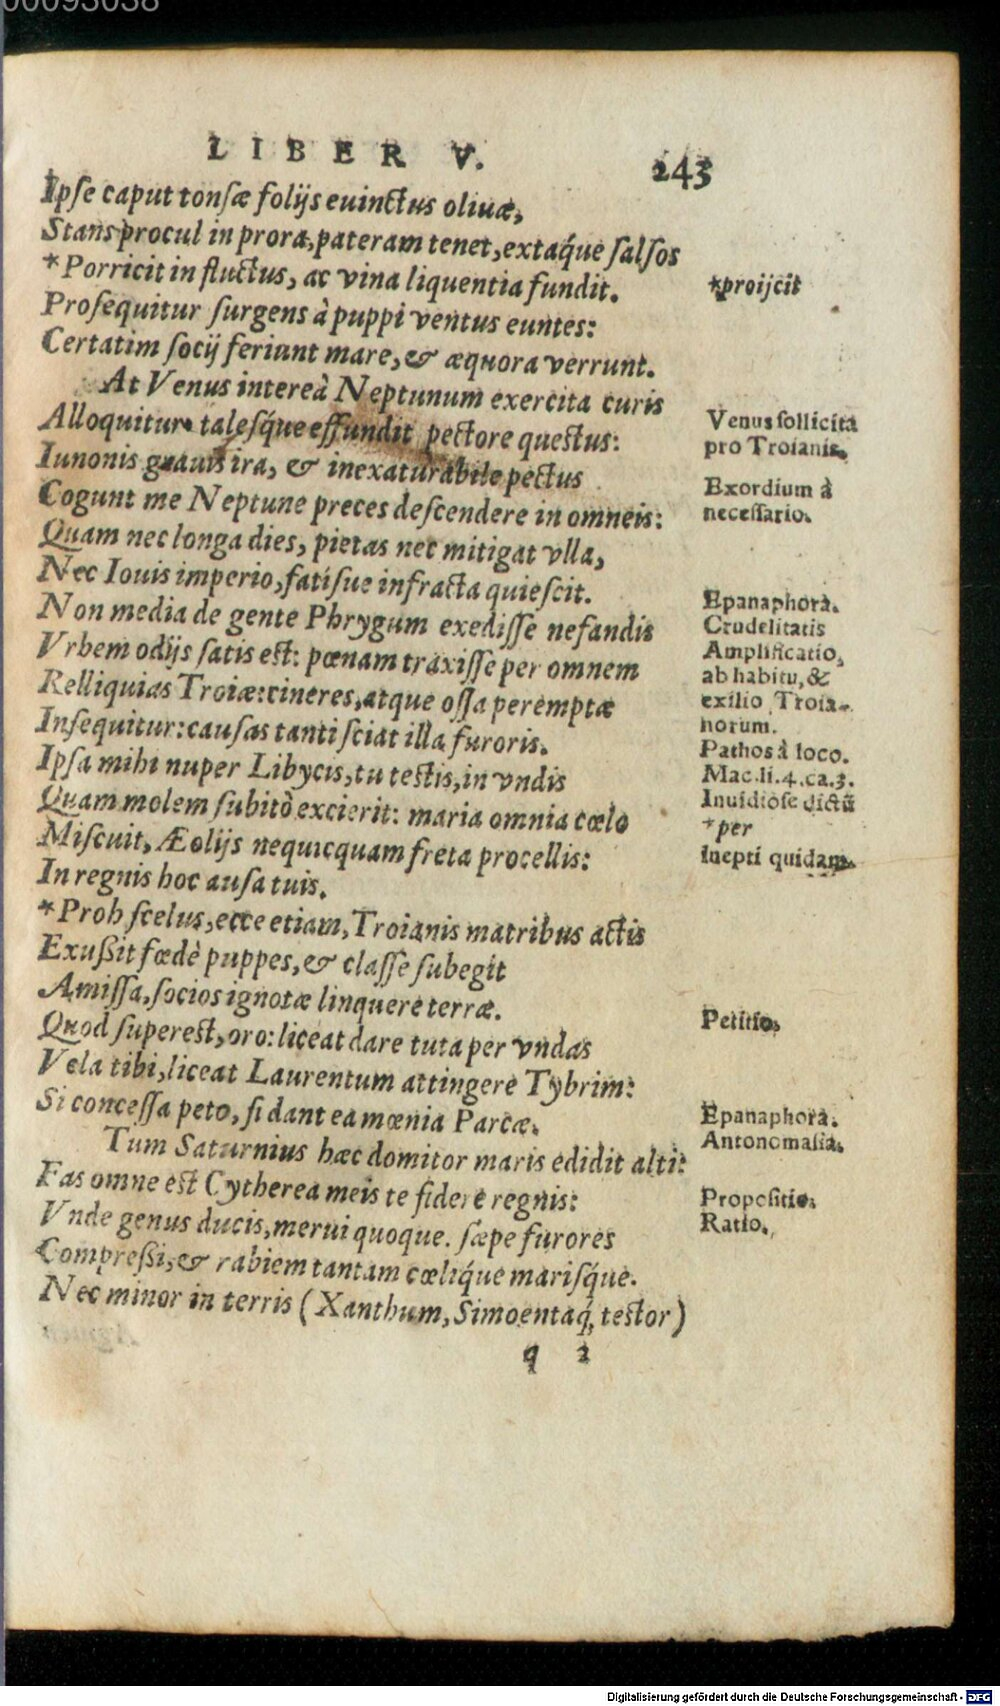 00093038
LIBER V. 243
Ipse caput tonsæ folijs euinctus oliuæ,
Stans procul in prora, pateram tenet, extaq́ue salsos
*Porricit in fluctus, ac vina liquentia fundit.
*proijcit
Prosequitur surgens à puppi ventus euntes:
Certatim socij feriunt mare, & æquora verrunt.
At Venus intereà Neptunum exercita curis
Venus sollicita
Alloquitur talesq́ue effundit pectore questus:
pro Troianis.
Iunonis grauis ira, & inexaturabile pectus
Exordium à
Cogunt me Neptune preces descendere in omneis:
necessario.
Quam nec longa dies, pietas nec mitigat vlla,
Nec Iouis imperio, fatisue infracta quiescit.
Epanaphora.
Non media de gente Phrygum exedisse nefandis
Crudelitatis
Vrbem odijs satis est: pœnam traxisse per omnem
Amplificatio,
ab habitu, &
Relliquias Troiæ: cineres, atque ossa peremptæ
exilio Troia-
Insequitur: causas tanti sciat illa furoris.
norum.
Ipsa mihi nuper Libycis, tu testis, in vndis
Pathos à loco.
Mac. li. 4. ca. 3.
Quam molem subitò excierit: maria omnia cœlo
Inuidiose dictũ
*per
Miscuit, Æolijs nequicquam freta procellis:
inepti quidam.
In regnis hoc ausa tuis.
*Proh scelus, ecce etiam, Troianis matribus actis
Exußit fœdè puppes, & classe subegit
Amissa, socios ignotæ linquere terræ.
Quod superest, oro: liceat dare tuta per vndas
Petitio,
Vela tibi, liceat Laurentum attingere Tybrim:
Si concessa peto, si dant ea mœnia Parcæ.
Epanaphora.
Tum Saturnius hæc domitor maris edidit alti:
Antonomasia.
Fas omne est Cytherea meis te fidere regnis:
Propositio.
Vnde genus ducis, merui quoque. sæpe furores
Ratio.
Compreßi, & rabiem tantam cœliq́ue marisq́ue.
Nec minor in terris (Xanthum, Simoentaq́, testor)
q 2
Digitalisierung gefördert durch die Deutsche Forschungsgemeinschaft - DFG